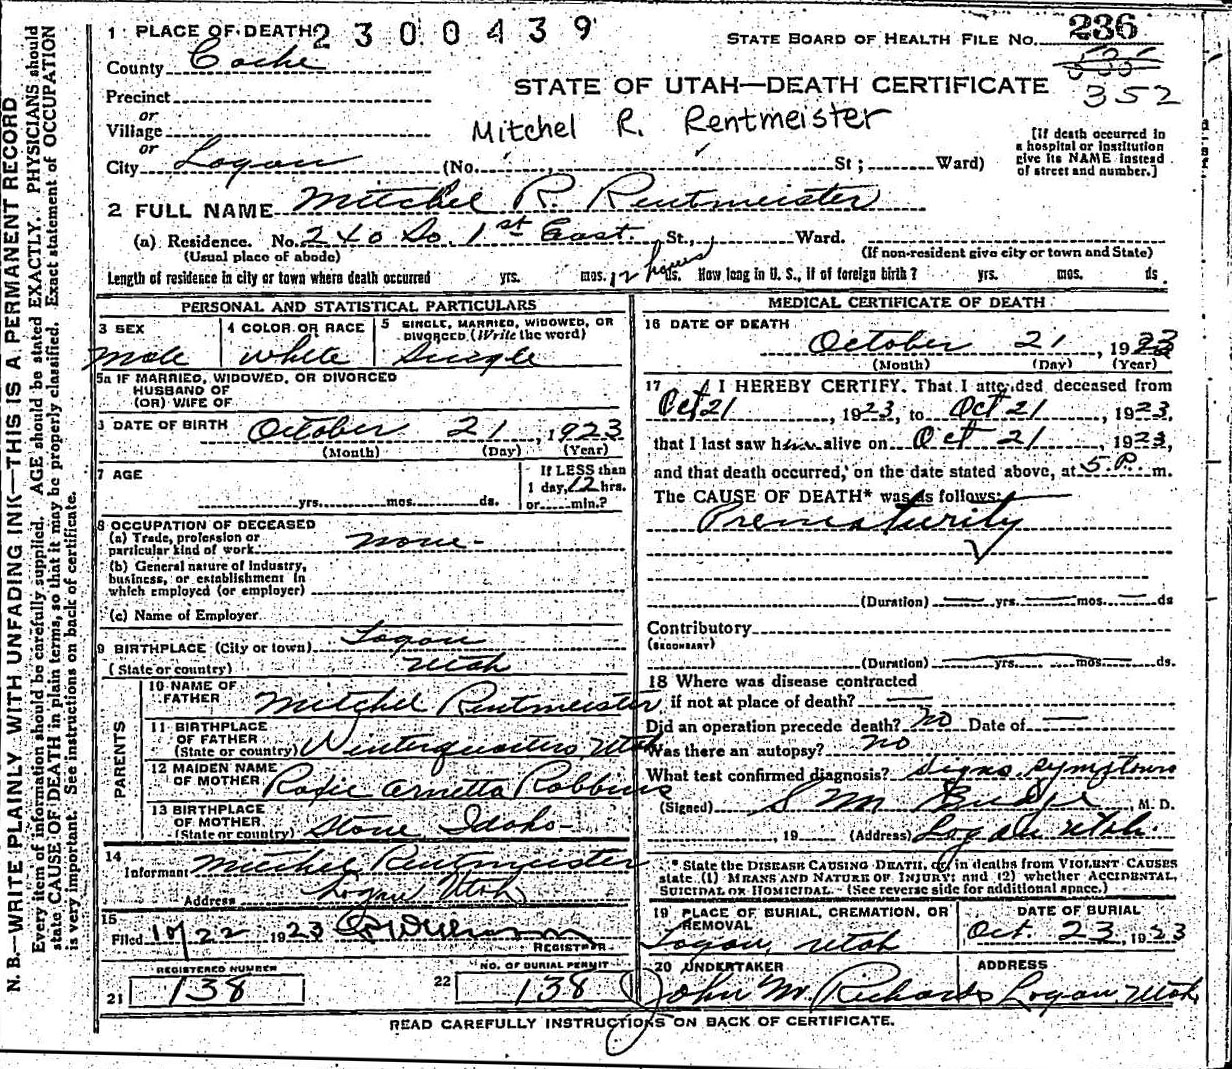 1 PLACE OF DEATH 2300439
STATE BOARD OF HEALTH FILE NO. 236
352
County Cache
STATE OF UTAH—DEATH CERTIFICATE
Precinct
or
Village
Mitchel R. Rentmeister
or
City Logan (No. St; Ward)
[If death occurred in
a hospital or institution
give its NAME instead
of street and number.]
2 FULL NAME Mitchel R. Rentmeister
(a) Residence. No. 240 So. 1st East St., Ward.
(Usual place of abode) (If non-resident give city or town and State)
Length of residence in city or town where death occurred yrs. mos. 12 hours ds. How long in U. S., if of foreign birth? yrs. mos. ds.
PERSONAL AND STATISTICAL PARTICULARS
3 SEX 4 COLOR OR RACE 5 SINGLE, MARRIED, WIDOWED, OR
DIVORCED (Write the word)
Male White Single
5a IF MARRIED, WIDOWED, OR DIVORCED
HUSBAND OF
(OR) WIFE OF
DATE OF BIRTH October 21, 1923
(Month) (Day) (Year)
7 AGE If LESS than
1 day, 12 hrs.
yrs. mos. ds. or min.?
8 OCCUPATION OF DECEASED
(a) Trade, profession or
particular kind of work none-
(b) General nature of industry,
business, or establishment in
which employed (or employer)
(c) Name of Employer
9 BIRTHPLACE (City or town) Logan
(State or country) Utah
PARENTS
10 NAME OF
FATHER Mitchel Rentmeister
11 BIRTHPLACE
OF FATHER
(State or country) Winterquarters, Utah
12 MAIDEN NAME
OF MOTHER Roxie Arnetta Robbins
13 BIRTHPLACE
OF MOTHER
(State or country) Stone Idaho-
14
Informant Mitchel Rentmeister
Address Logan Utah
15
Filed 10/22 1923
REGISTRAR
REGISTERED NUMBER
21 138
NO. OF BURIAL PERMIT
22 138
MEDICAL CERTIFICATE OF DEATH
16 DATE OF DEATH
October 21, 1923
(Month) (Day) (Year)
17 I HEREBY CERTIFY, That I attended deceased from
Oct 21, 1923, to Oct 21, 1923,
that I last saw him alive on Oct 21, 1923,
and that death occurred, on the date stated above, at 5 P. m.
The CAUSE OF DEATH* was as follows:
Prematurity
(Duration) yrs. mos. ds
Contributory
(SECONDARY)
(Duration) yrs. mos. ds.
18 Where was disease contracted
if not at place of death?
Did an operation precede death? no Date of
Was there an autopsy? no
What test confirmed diagnosis? Signs, symptoms
(Signed) S M Budge, M. D.
19 (Address) Logan Utah.
* State the DISEASE CAUSING DEATH, or, in deaths from VIOLENT CAUSES
state (1) MEANS AND NATURE OF INJURY; and (2) whether ACCIDENTAL,
SUICIDAL OR HOMICIDAL. (See reverse side for additional space.)
19 PLACE OF BURIAL, CREMATION, OR
REMOVAL
Logan, Utah
DATE OF BURIAL
Oct. 23, 1923
20 UNDERTAKER ADDRESS
John M. Richards Logan, Utah
READ CAREFULLY INSTRUCTIONS ON BACK OF CERTIFICATE.
N. B.—WRITE PLAINLY WITH UNFADING INK—THIS IS A PERMANENT RECORD
Every item of information should be carefully supplied. AGE should be stated EXACTLY. PHYSICIANS should
state CAUSE OF DEATH in plain terms, so that it may be properly classified. Exact statement of OCCUPATION
is very important. See instructions on back of certificate.